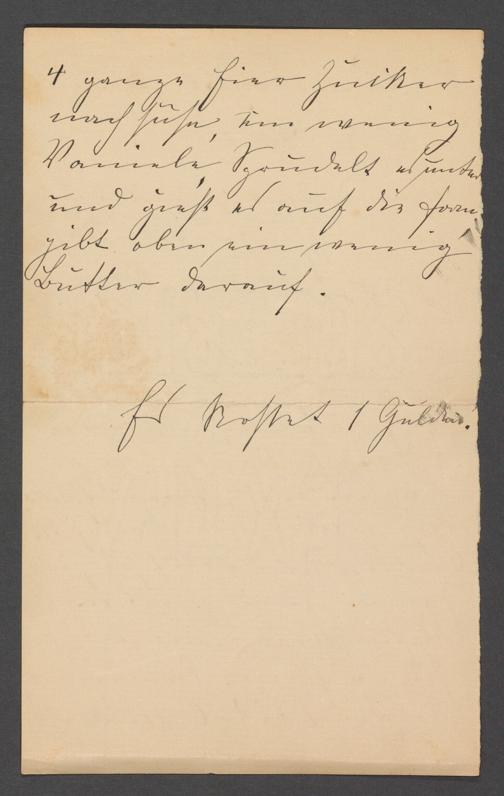 4 ganze Eier Zucker
nach süße, ein wenig
Vaniele, Sprudelt es unter
und gießt es auf die Form,
gibt oben ein wenig
Butter darauf.
Es kostet 1 Gulden.